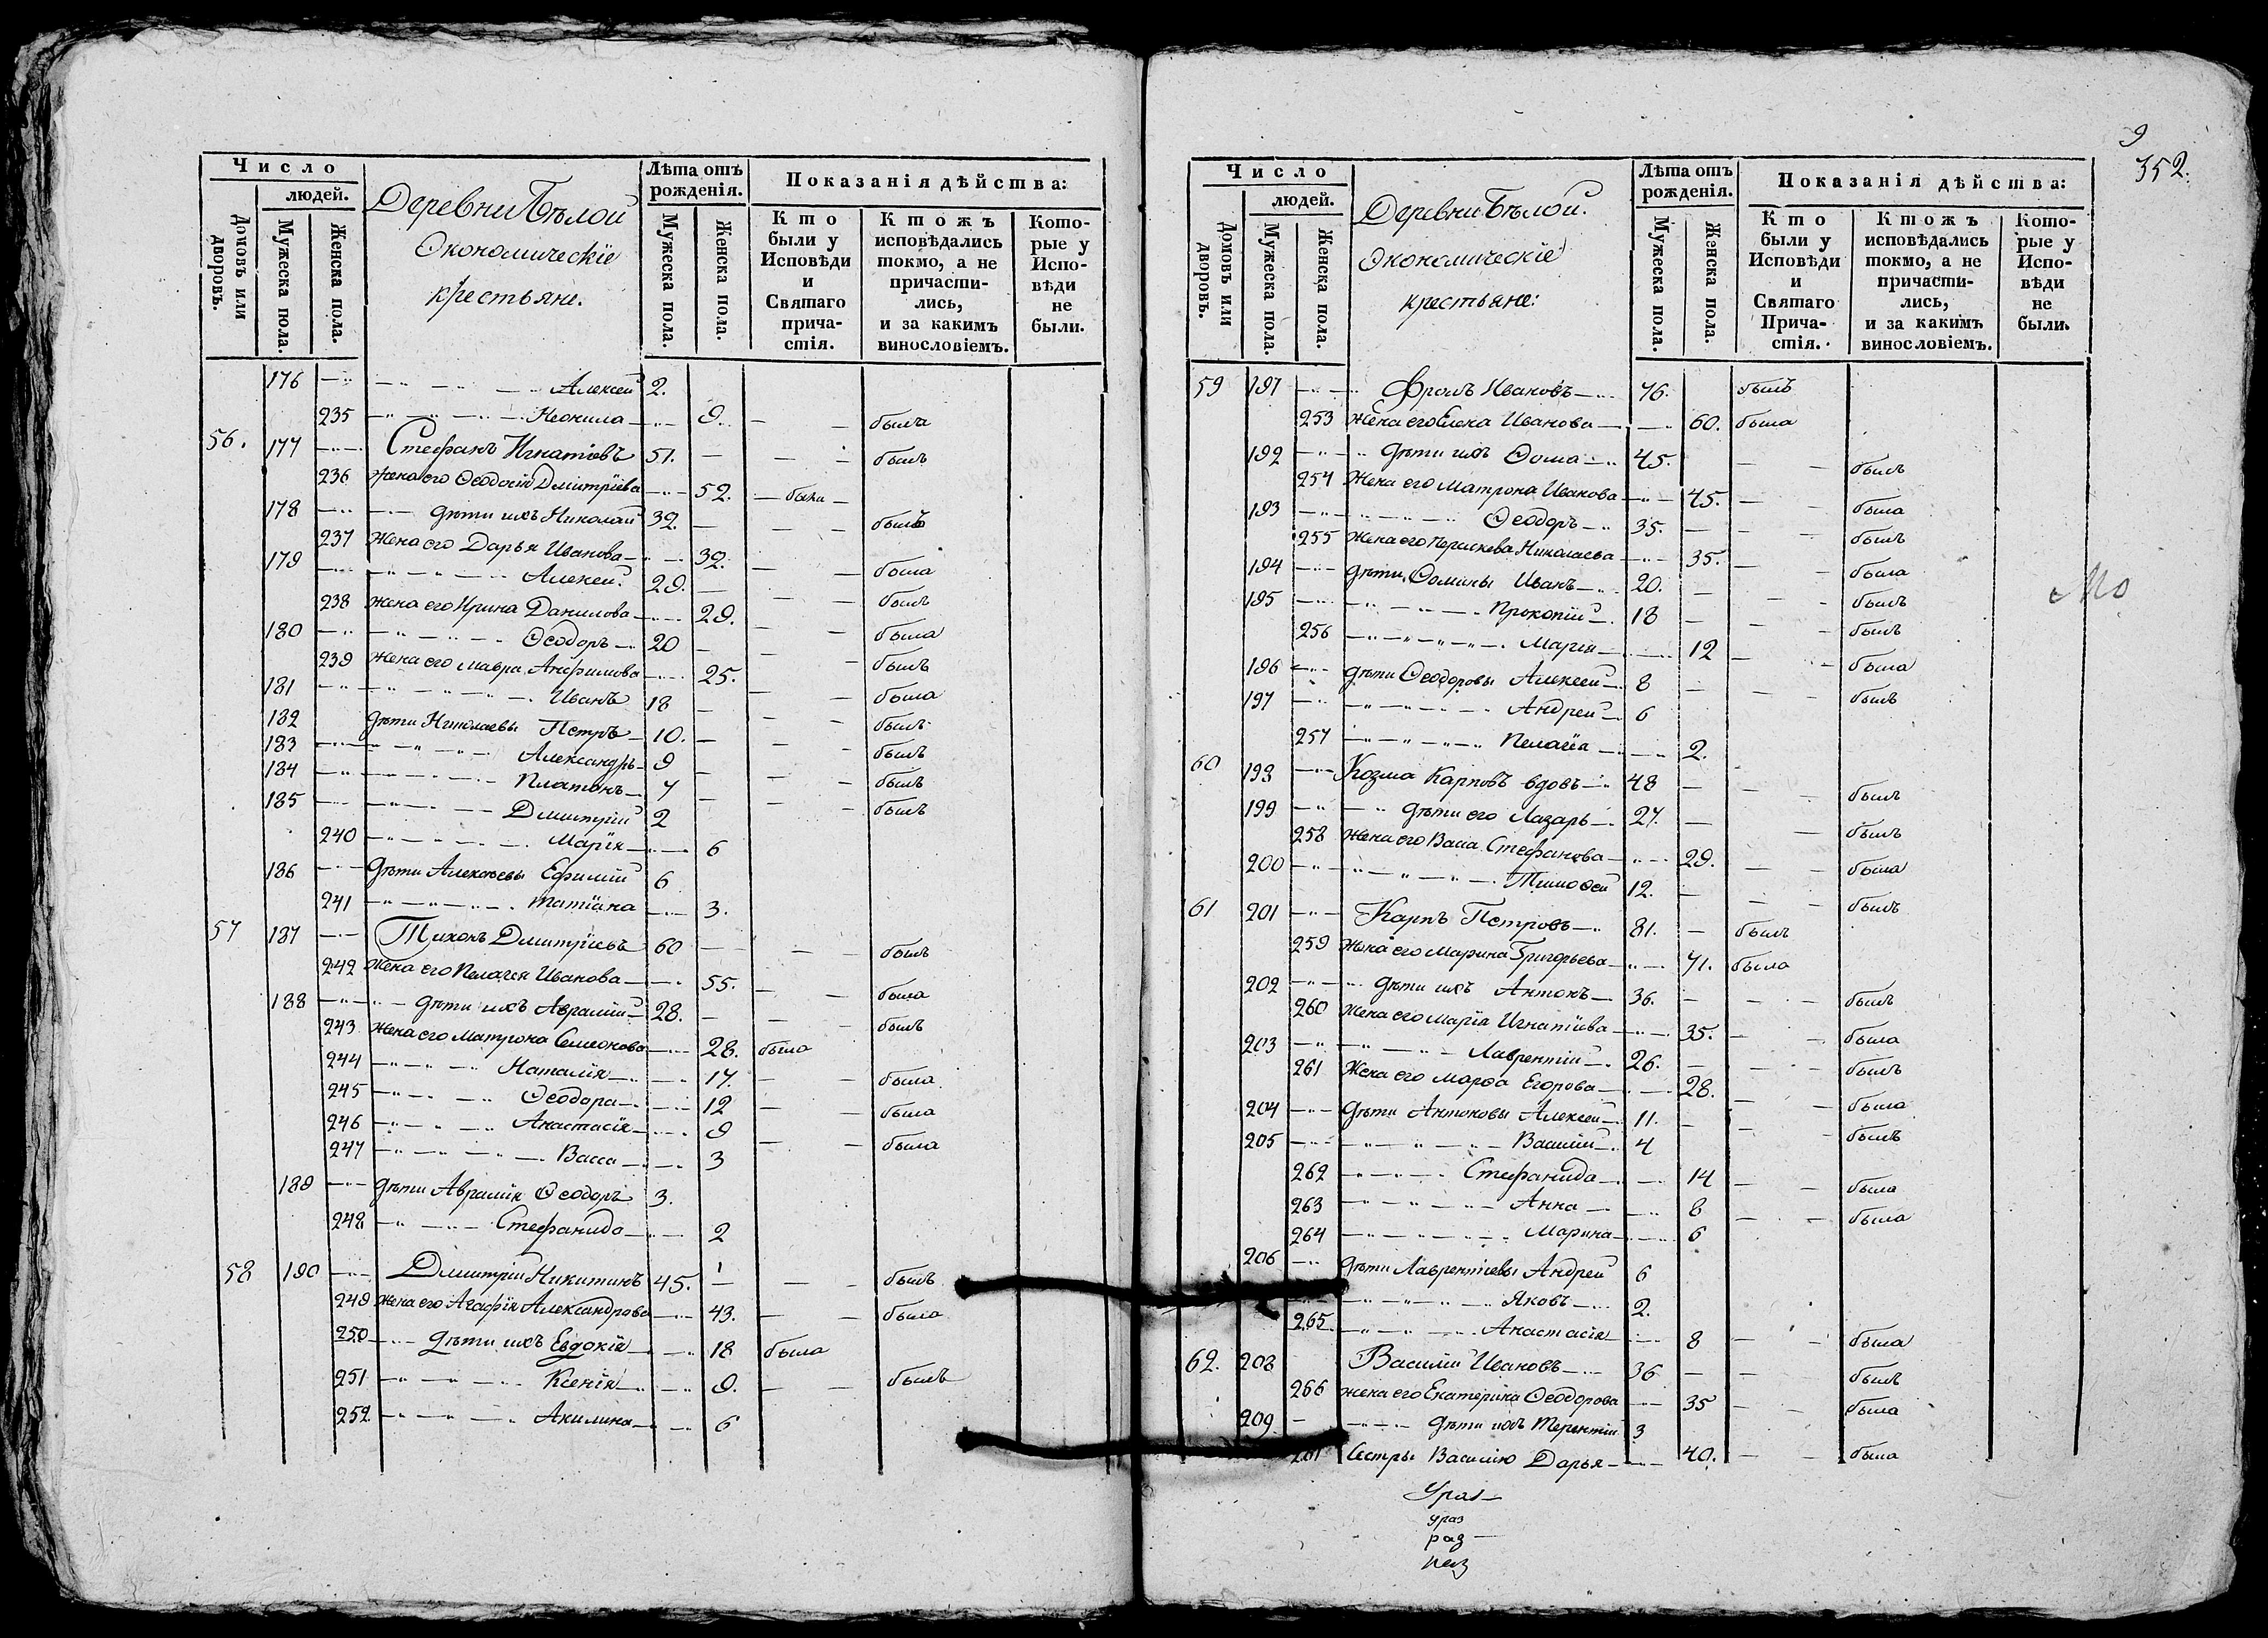 Число
людей.
Домовъ или дворовъ.
Мужеска пола.
Женска пола.
Деревни Бѣлой
Экономическіе
крестьяне.
Лѣта отъ рожденія.
Мужеска пола.
Женска пола.
Показанія дѣйства:
Кто были у Исповѣди и Святаго причастія.
Ктожъ исповѣдались токмо, а не причастились, и за какимъ винословіемъ.
Которые у Исповѣди не были.
176 Алексей 2.
235 Неонила 9. была
56. 177 Стефанъ Игнатіевъ 51. былъ
236 жена его Ѳеодосія Дмитріева 52. была
178 дѣти ихъ Николай 32. былъ
237 жена его Дарья Иванова 32. была
179 Алексей 29. былъ
238 жена его Ирина Данилова 29. была
180 Ѳеодоръ 20 былъ
239 жена его Мавра Анфимова 25. была
181 Иванъ 18 былъ
182 дѣти Николаевы Петръ 10. былъ
183 Александръ 9 былъ
184 Платонъ 7 былъ
185 Дмитрій 2
240 Марія 6
186 дѣти Алексѣевы Ефимій 6
241 Татіана 3.
57 187 Тихонъ Дмитріевъ 60 былъ
242 жена его Пелагея Иванова 55. была
188 дѣти ихъ Аврамій 28. былъ
243 жена его Матрона Семионова 28. была
244 Наталія 17. была
245 Ѳеодора 12 была
246 Анастасія 9 была
247 Васса 3
189 дѣти Аврамія Ѳеодоръ 3.
248 Стефанида 2
58 190 Дмитрій Никитинъ 45. былъ
249 жена его Агафія Александрова 43. была
250 дѣти ихъ Евдокія 18 была
251 Ксенія 9. былъ
252 Акилина 6
9
352.
Число
людей.
Домовъ или дворовъ.
Мужеска пола.
Женска пола.
Деревни Бѣлой.
Экономическіе
крестьяне:
Лѣта отъ рожденія.
Мужеска пола.
Женска пола.
Показанія дѣйства:
Кто были у Исповѣди и Святаго Причастія.
Ктожъ исповѣдались токмо, а не причастились, и за какимъ винословіемъ.
Которые у Исповѣди не были.
59 191 Фролъ Ивановъ 76. былъ
253 жена его Елена Иванова 60. была
192 дѣти ихъ Ѳома 45. былъ
254 Жена его Матрона Иванова 45. была
193 Ѳеодоръ 35. былъ
255 жена его Пераскева Николаева 35. была
194 дѣти Ѳомины Иванъ 20. былъ
195 Прокопій 18 былъ
256 Марія 12 была
196 дѣти Ѳеодоровы Алексей 8 былъ
197 Андрей 6
257 Пелагіа 2.
60 198 Козма Карповъ вдовъ 48 былъ
199 дѣти его Лазарь 27. былъ
258 жена его Васса Стефанова 29. была
200 Тимоѳей 12. былъ
61 201 Карпъ Петровъ 81. былъ
259 жена его Марина Григорьева 71. была
202 дѣти ихъ Антонъ 36. былъ
260 жена его Марія Игнатіева 35. была
203 Лаврентій 26. былъ
261 Жена его Марѳа Егорова 28. была
204 дѣти Антоновы Алексей 11. былъ
205 Василій 4
262 Стефанида 14 была
263 Анна 8 была
264 Марина 6
206 дѣти Лаврентіевы Андрей 6
Яковъ 2.
265 Анастасія 8 была
62. 208 Василій Ивановъ 36 былъ
266 жена его Екатерина Ѳеодорова 35 была
209 дѣти ихъ Терентій 3
Сестра Василію Дарья 40. была
ураз
раз
Мо